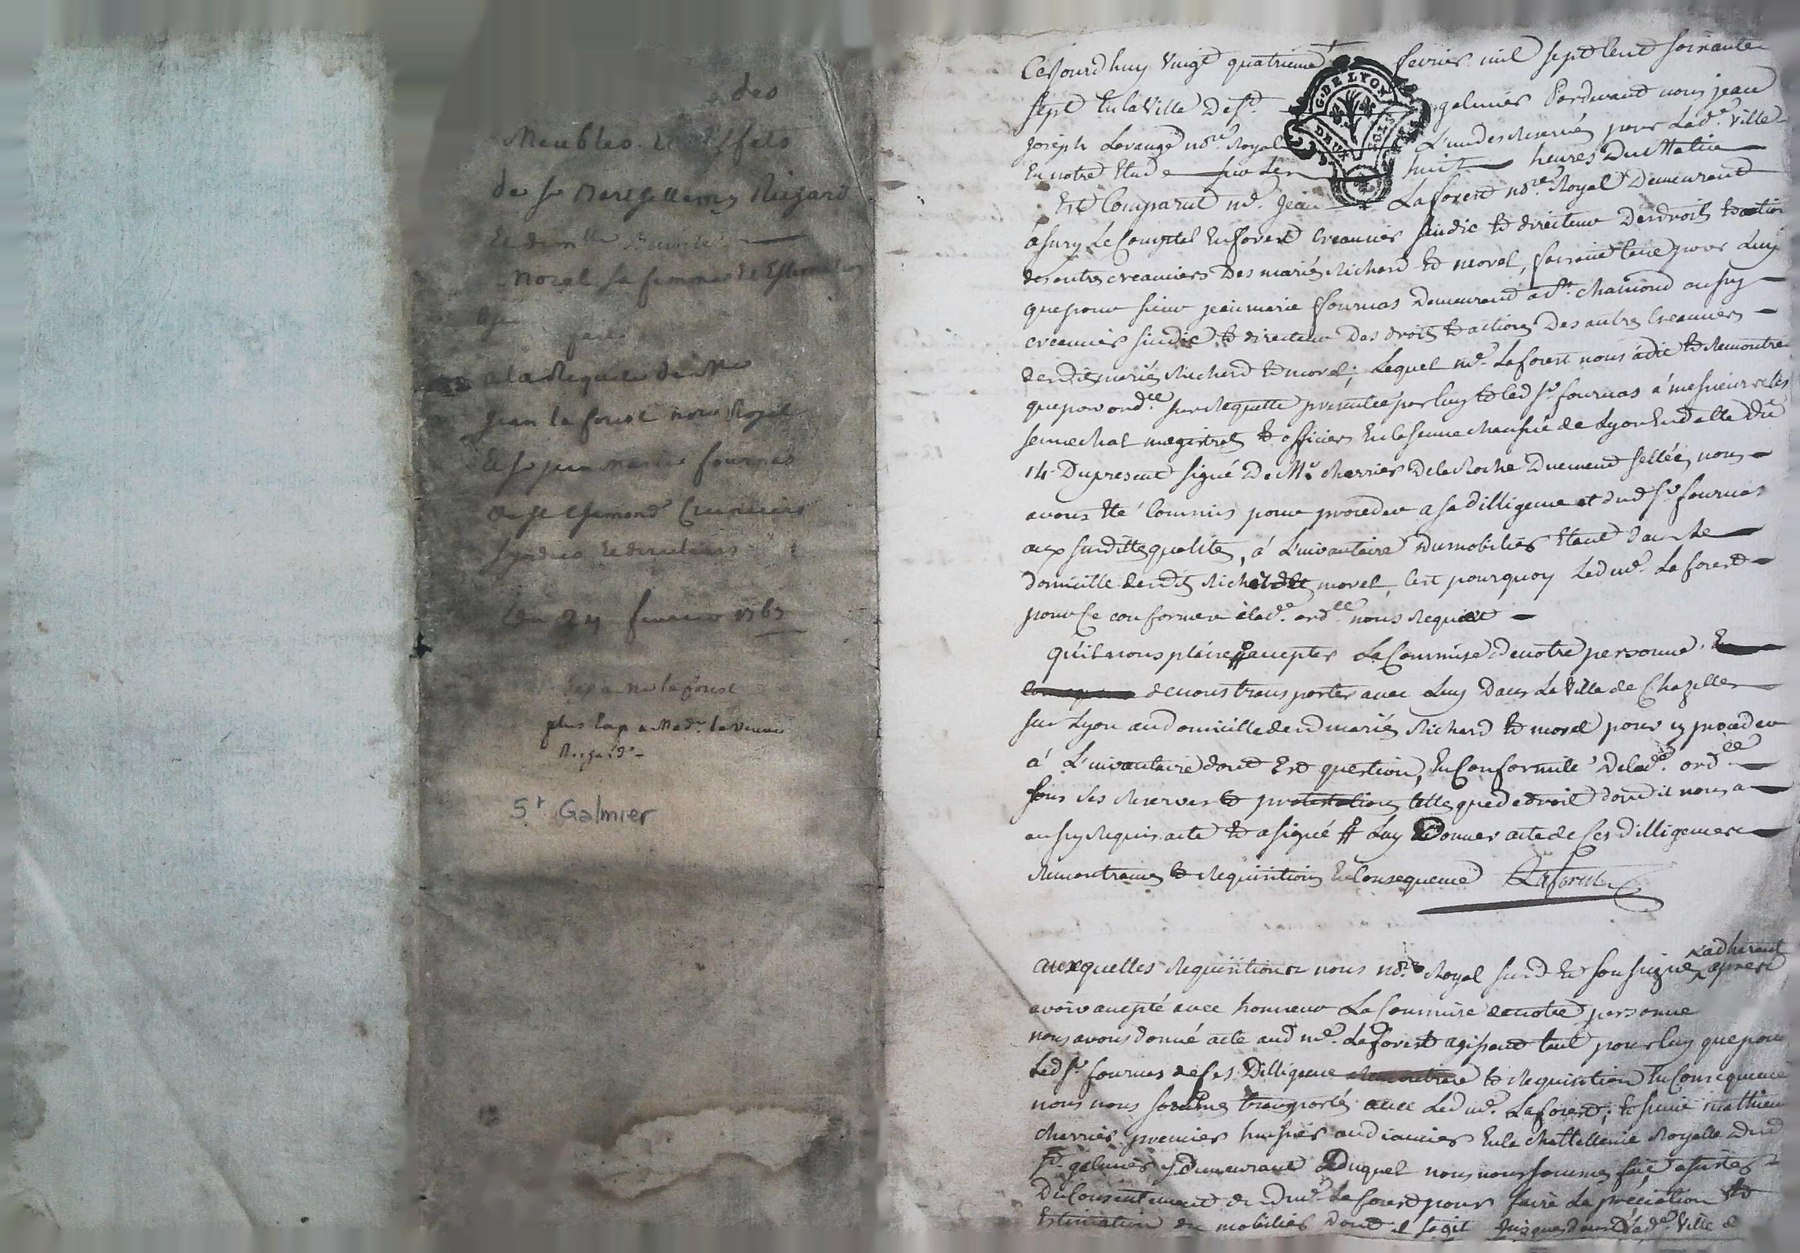 des
Meubles et Effets
de sr Barthellemy Richard
et dem.lle
Morel sa femme de
fait
a la Requete de Me
Jean la forest no.re Royal
Et sr jean marie fournas
de st Chamond Creanciers
syndics et directeurs
du 24 fevrier 1767
Exp a Me la forest
plus Exp a Mad.e la veuve
Richard
St Galmier
G. DE LYON
DEUX
Cejourdhuy vingt quatrieme fevrier mil sept cent soixante
sept En la Ville De st galmier Pardevant nous jean
joseph Levangé no.re Royal L'un des Reservés pour Lad.e Ville
En notre Etude sur Les huit heures Du Matin
Est Comparut me. Jean Laforest no.re Royal Demeurant
a sury Le Comptal En forest creancier sindic et directeur Des droits et actions
des autres creanciers Des mariés Richard et morel, faisant tant pour Luy
que pour sieur jean marie fournas Demeurant a st. chamond aussy
creancier sindic et directeur Des droits et actions Des autres Creanciers
desdits mariés Richard et morel; Lequel me. Laforest nous a dit et Remontré
que par ord.ce sur Requette presentée par luy et led sr. fournas a messieurs les
senechal magistrats et officiers En la senechaussée de Lyon En datte du
14 Du present signé De Mr. charrier De la Roche Duement sellée, nous
avons Eté Commis pour proceder a sa dilligence et dud sr. fournas
aux susdittes qualités, à L'inventaire Du mobilier Etant dans le
domicille desdits Richard et morel, C'est pourquoy Led me. Laforest
pour se conformer à lad.e ord.ce nous Requiert
qu'il nous plaise accepter La Commise de notre personne. Et
de nous transporter avec Luy Dans La Ville de Chazelles
sur Lyon au domicille desd mariés Richard et morel pour y proceder
à L'inventaire dont Est question, En Conformité De lad.e ord.ce
sous ses Reserves et protestations telles que de droit dont il nous a
aussy Requis acte et a signé # Luy Donner acte de Ces dilligences
Remontrances et Requisitions En Consequence Laforest
auxquelles Requisitions nous no.re Royal susd et soussigné adherant
apres
avoir accepté avec honneur La Commise de notre personne
nous avons donné acte aud me. Laforest agissant tant pour luy que pour
Led sr. fournas de ses Dilligence et Requisition En Consequence
nous nous sommes transportés avec Led me. Laforest, et sieur mathieu
cherrier premier huissier audiancier En la chattellenie Royalle dud
st. galmier y Demeurant Duquel nous nous sommes fait assister
Du Consentement dud me. Laforest pour faire La preciation et
Estimation du mobilier dont il s'agit jusques dans lad.e Ville de